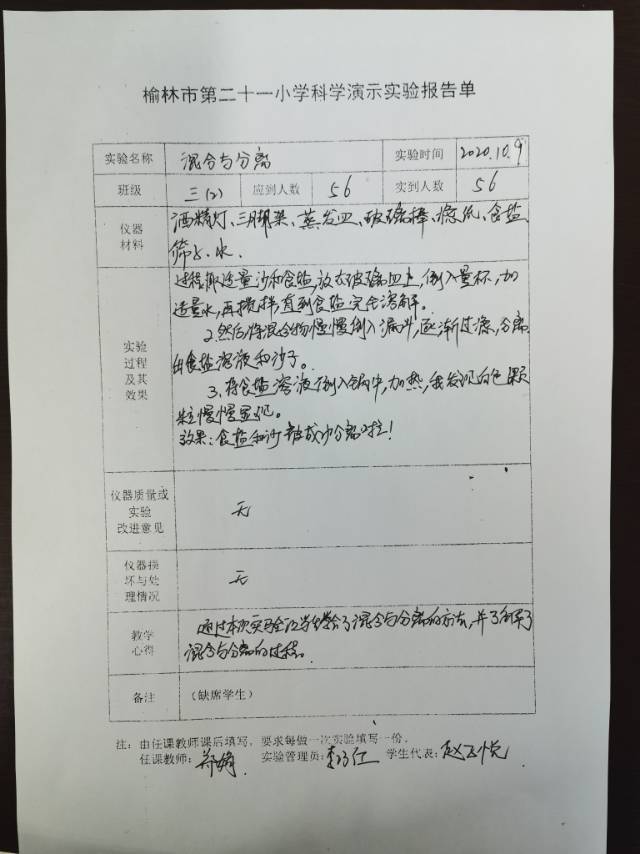 榆林市第二十一小学科学演示实验报告单
实验名称 混合与分离 实验时间 2020.10.9
班级 三(2) 应到人数 56 实到人数 56
仪器材料 酒精灯、三脚架、蒸发皿、玻璃棒、滤纸、食盐
筛子、水
实验过程及其效果 过程:取适量沙和食盐,放在玻璃皿上,倒入量杯,加
适量水,再搅拌,直到食盐完全溶解。
2.然后将混合物慢慢倒入漏斗,逐渐过滤,分离
出食盐溶液和沙子。
3.将食盐溶液倒入锅中,加热,我发现白色颗
粒慢慢显现。
效果:食盐和沙被成功分离
仪器质量或实验改进意见 无
仪器损坏与处理情况 无
教学心得 通过本次实验让学生学会了混合与分离的方法,并了解了
混合与分离的过程。
备注 (缺席学生)
注:由任课教师课后填写,要求每做一次实验填写一份。
任课教师: 郑娟 实验管理员: 学生代表: